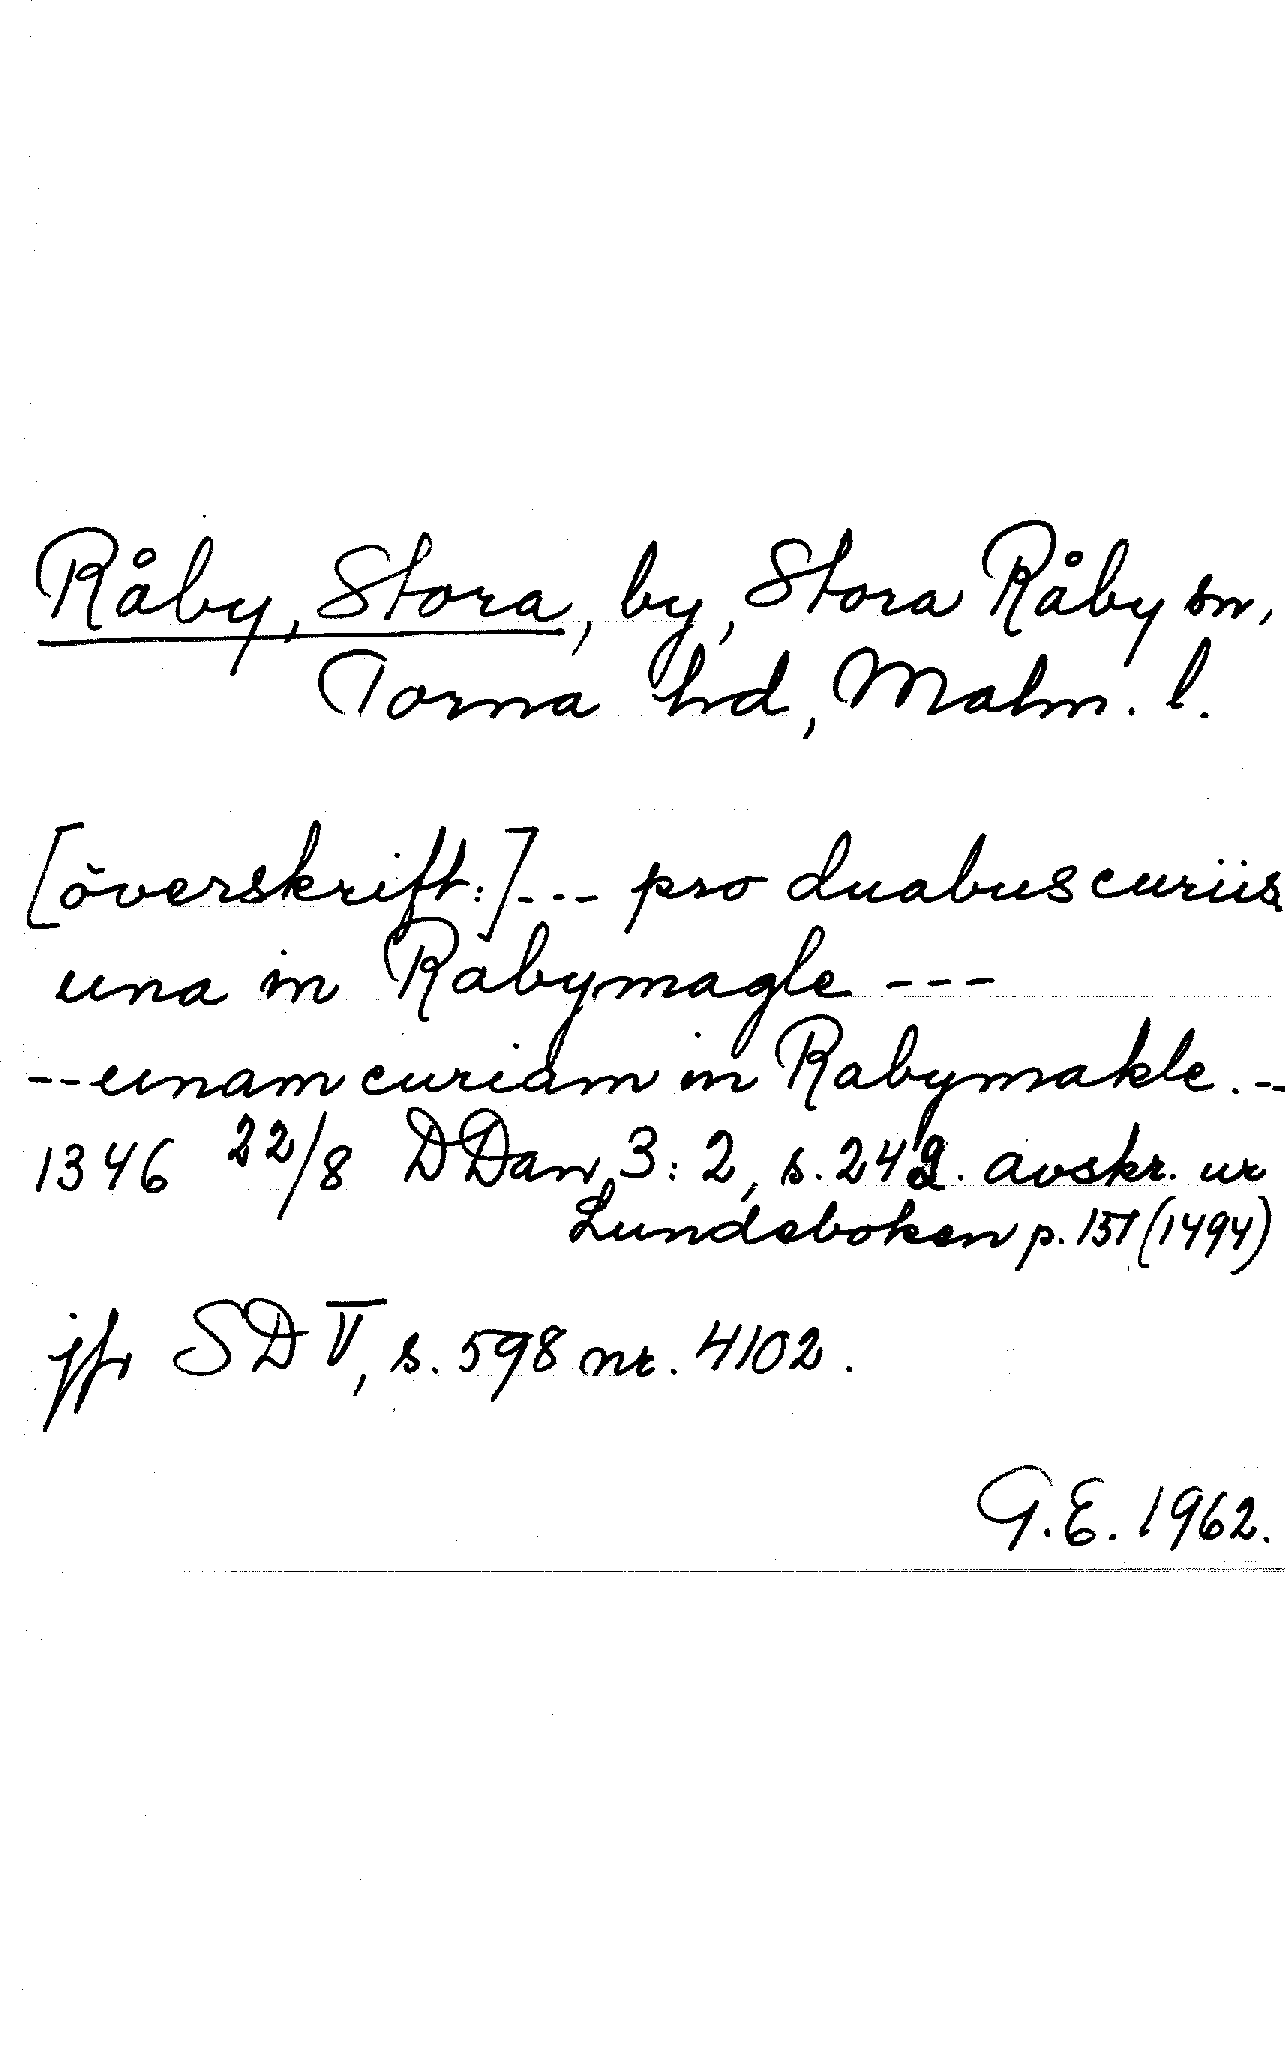 Råby, Stora, by, Stora Råby sn,
Torna hd, Malm. l.
[överskrift:] --- pro duabus curiis
una in Råbymagle ---
-- unam curiam in Rabymakle. --
1346 22/8 DDan 3:2, s. 242. avskr. ur
Lundeboken p. 151 (1494)
jfr SD V, s. 598 nr. 4102.
G.E. 1962.